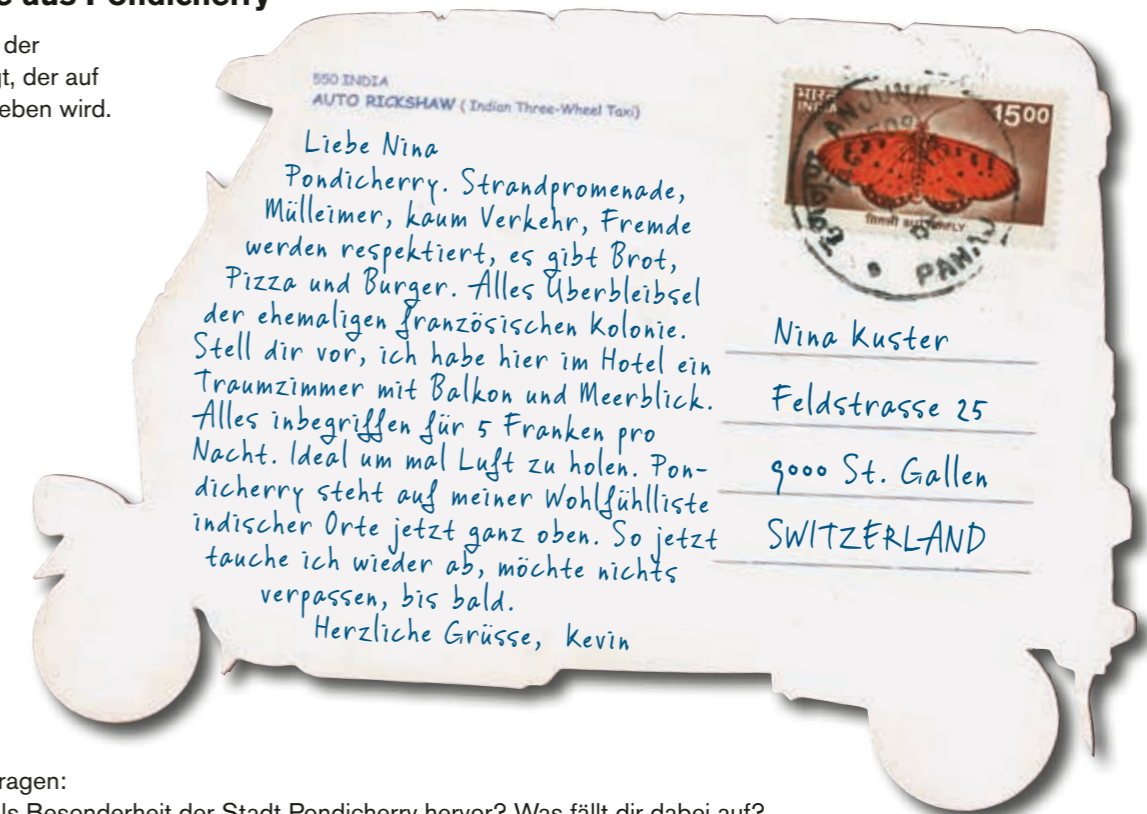 aus Pondicherry
der
gt, der auf
eben wird.
550 INDIA
AUTO RICKSHAW (Indian Three-Wheel Taxi)
Liebe Nina
Pondicherry. Strandpromenade,
Mülleimer, kaum Verkehr, Fremde
werden respektiert, es gibt Brot,
Pizza und Burger. Alles Überbleibsel
der ehemaligen französischen Kolonie.
Stell dir vor, ich habe hier im Hotel ein
Traumzimmer mit Balkon und Meerblick.
Alles inbegriffen für 5 Franken pro
Nacht. Ideal um mal Luft zu holen. Pon-
dicherry steht auf meiner Wohlfühlliste
indischer Orte jetzt ganz oben. So jetzt
tauche ich wieder ab, möchte nichts
verpassen, bis bald.
Herzliche Grüsse, Kevin
भारत
INDIA
1500
तितली BUTTERFLY
ANJUNA
Nina Kuster
Feldstrasse 25
9000 St. Gallen
SWITZERLAND
ragen:
ls Besonderheit der Stadt Pondicherry hervor? Was fällt dir dabei auf?